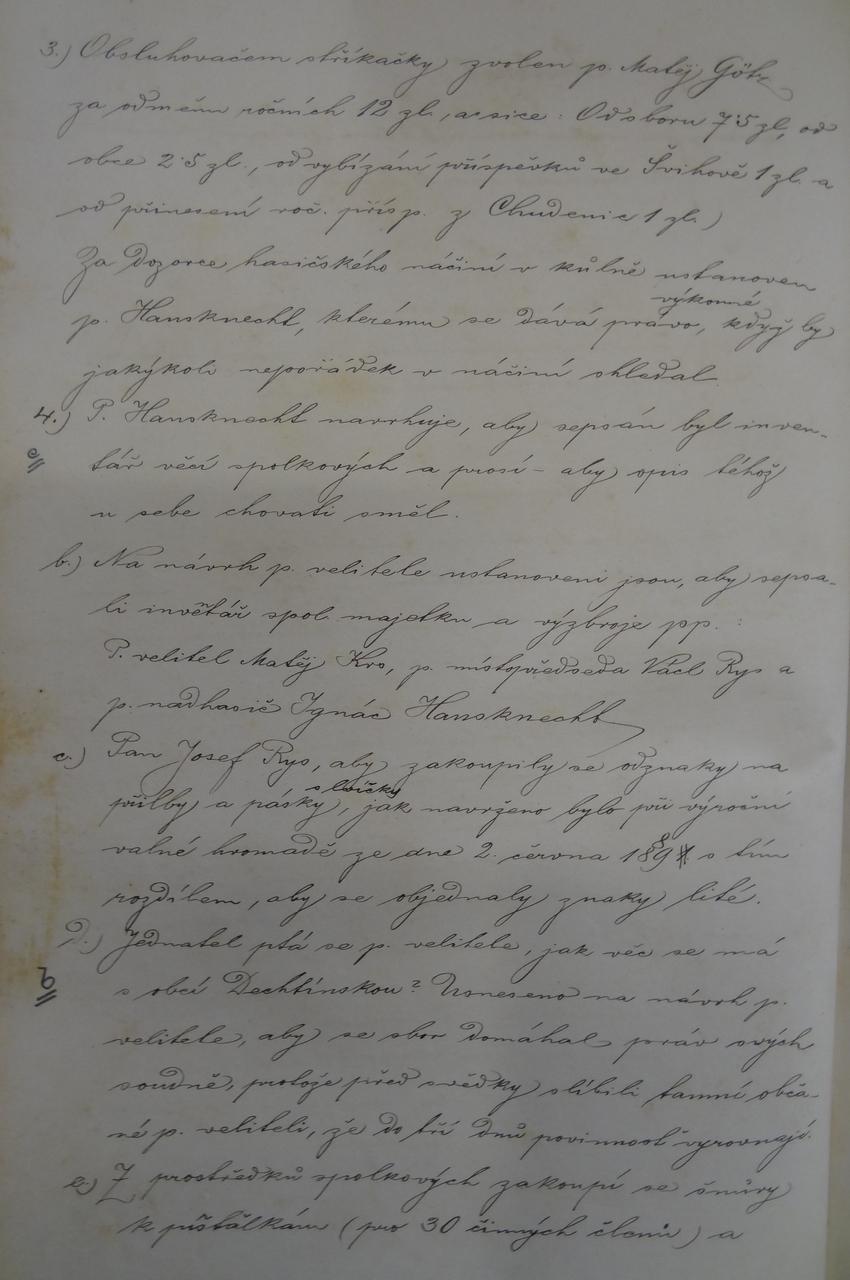 3.) Obsluhovačem stříkačky zvolen p. Matěj Götz
za odměnu ročních 12 zl., a sice: Od sboru 7·5 zl, od
obce 2·5 zl., od vybízání příspěvků ve Švihově 1 zl. a
od přinesení roč. přísp. z Chudenic 1 zl.)
Za dozorce hasičského náčiní v kůlně ustanoven
výkonné
p. Hansknecht, kterému se dává právo, když by
jakýkoli nepořádek v náčiní shledal
4.) P. Hansknecht navrhuje, aby sepsán byl inven-
a
tář věcí spolkových a prosí – aby opis téhož
u sebe chovati směl.
b.) Na návrh p. velitele ustanoveni jsou, aby sepsa-
li invětář spol. majetku a výzbroje pp. :
P. velitel Matěj Kro, p. místopředseda Václ Rys a
p. nadhasič Ignác Hansknecht
c.) Pan Josef Rys, aby zakoupily se odznaky na
s lvíčky
přilby a pásky, jak navrženo bylo při výroční
valné hromadě ze dne 2. června 189 s tím
rozdílem, aby se objednaly znaky lité.
D.) Jednatel ptá se p. velitele, jak věc se má
s obcí Dechtínskou? Usneseno na návrh p.
b
velitele, aby se sbor domáhal práv svých
soudně, protože před svědky slíbili tamní obča-
né p. veliteli, že do tří dnů povinnost vyrovnají.
e.) Z prostředků spolkových zakoupí se šňůry
k píšťalkám (pro 30 činných členů) a